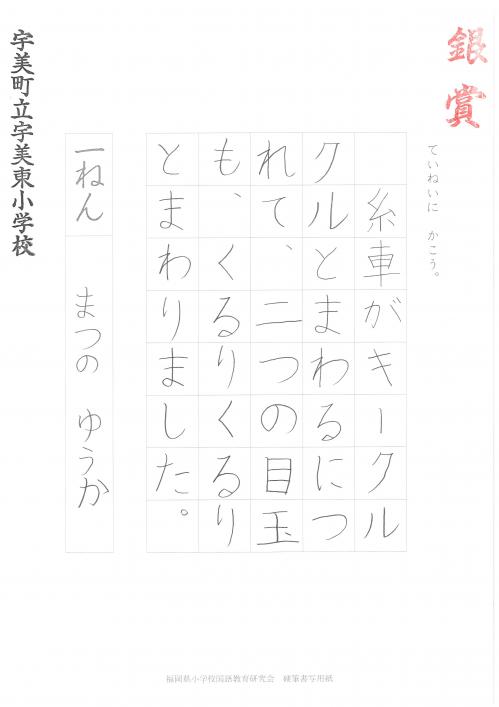 銀賞
ていねいに　かこう。
　糸車がキークル
クルとまわるにつ
れて、二つの目玉
も、くるりくるり
とまわりました。
一ねん　まつの　ゆうか
宇美町立宇美東小学校
福岡県小学校国語教育研究会　硬筆書写用紙